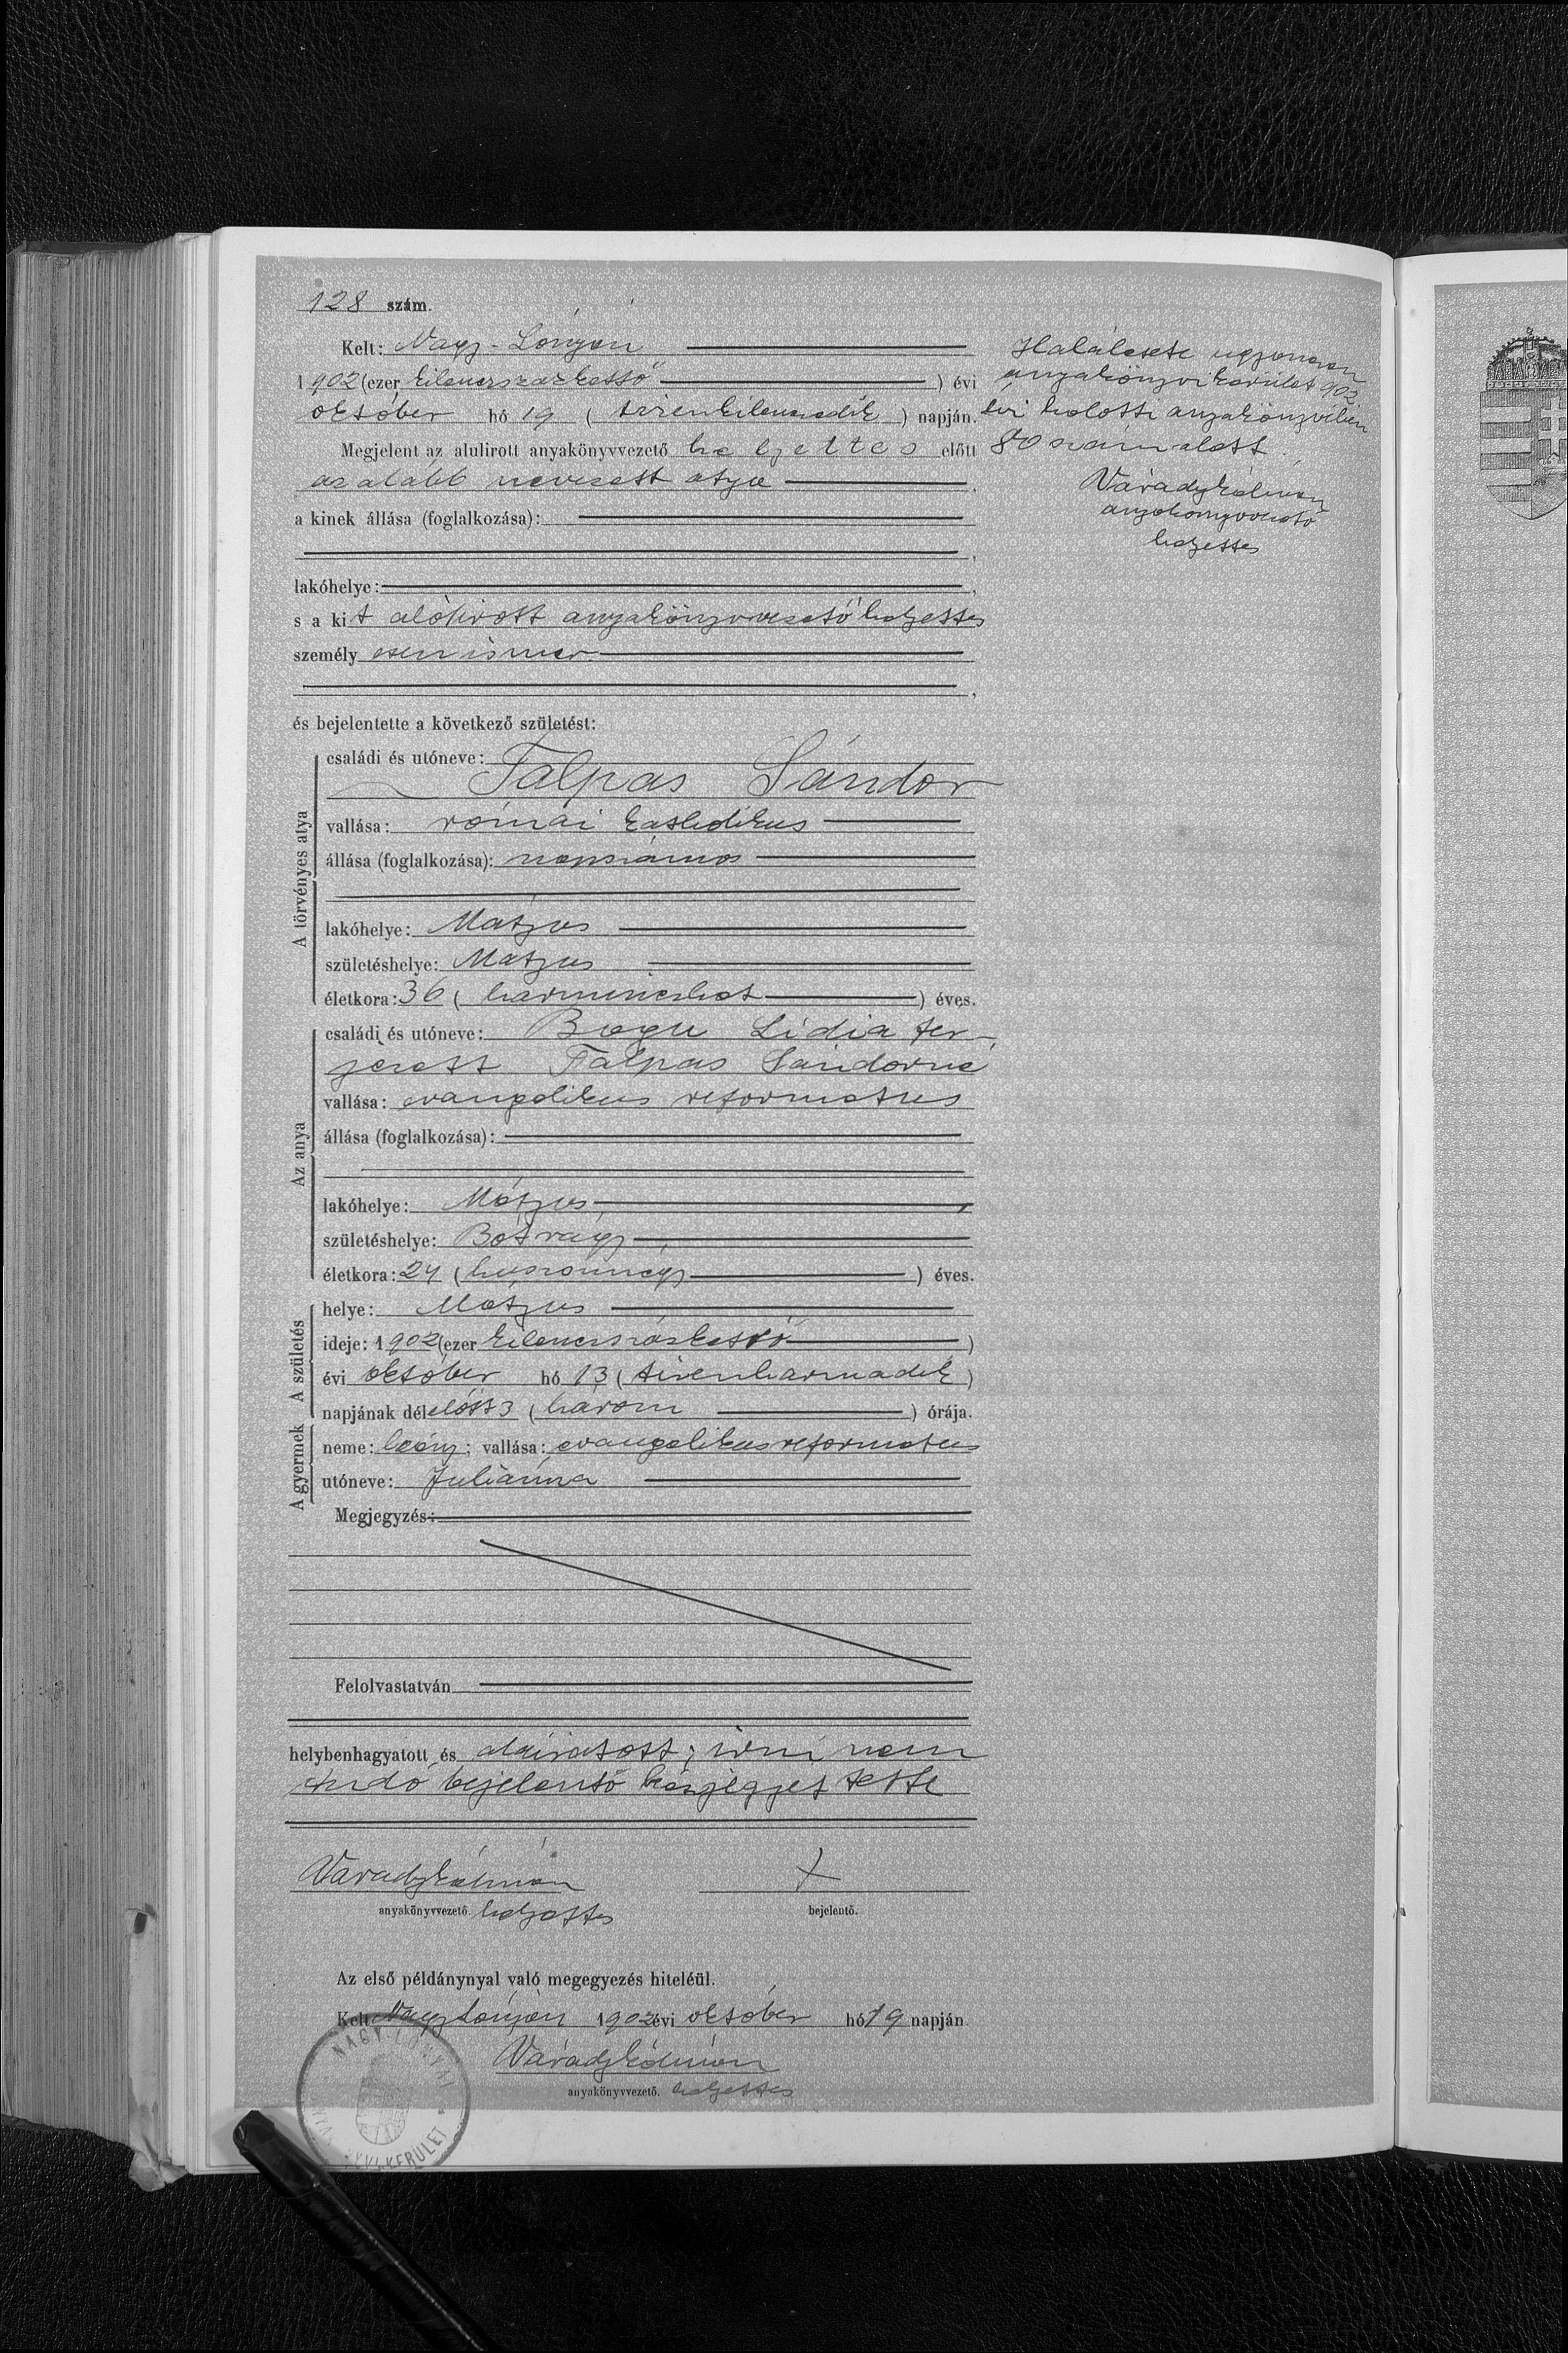 128 szám.
Kelt: Nagy-Lónyán
1902 (ezer kilencszázkettő) évi
október hó 19 (tizenkilencedik) napján.
Megjelent az alulirott anyakönyvvezető helyettes előtt
az alább nevezett atya,
a kinek állása (foglalkozása):
lakóhelye:
s a kit alólirott anyakönyvvezető helyettes
személyesen ismer
és bejelentette a következő születést:
A törvényes atya
családi és utóneve:
Talpas Sándor
vallása: római katholikus
állása (foglalkozása): napszámos
lakóhelye: Mátyus
születéshelye: Mátyus
életkora: 36 (harminczhat) éves.
Az anya
családi és utóneve: Lidia fér-
jezett Talpas Sándorné
vallása: evangelikus reformatus
állása (foglalkozása):
lakóhelye: Mátyus,
születéshelye: Bótrágy,
életkora: 24 (huszonnégy) éves.
A születés
helye: Mátyus
ideje: 1902 (ezer kilencszázkettő)
évi október hó 13 (tizenharmadik)
napjának délelőtt 3 (három) órája.
A gyermek
neme: leány; vallása: evangelikus reformatus
utóneve: Juliánna
Megjegyzés:
Felolvastatván
helybenhagyatott és aláiratott; irni nem
tudó bejelentő kézjegyet tette
Várady Kálmán
anyakönyvvezető helyettes
X
bejelentő.
Az első példánynyal való megegyezés hiteléül.
Kelt Nagy Lónyán 1902 évi október hó 19 napján
Várady Kálmán
anyakönyvvezető. helyettes
NAGY LÓNYAI
KERÜLET
Halálesete ugyanezen
anyakönyvi kerület 902
évi halotti anyakönyvében
80 szám alatt.
Várady Kálmán
anyakönyvvezető
helyettes